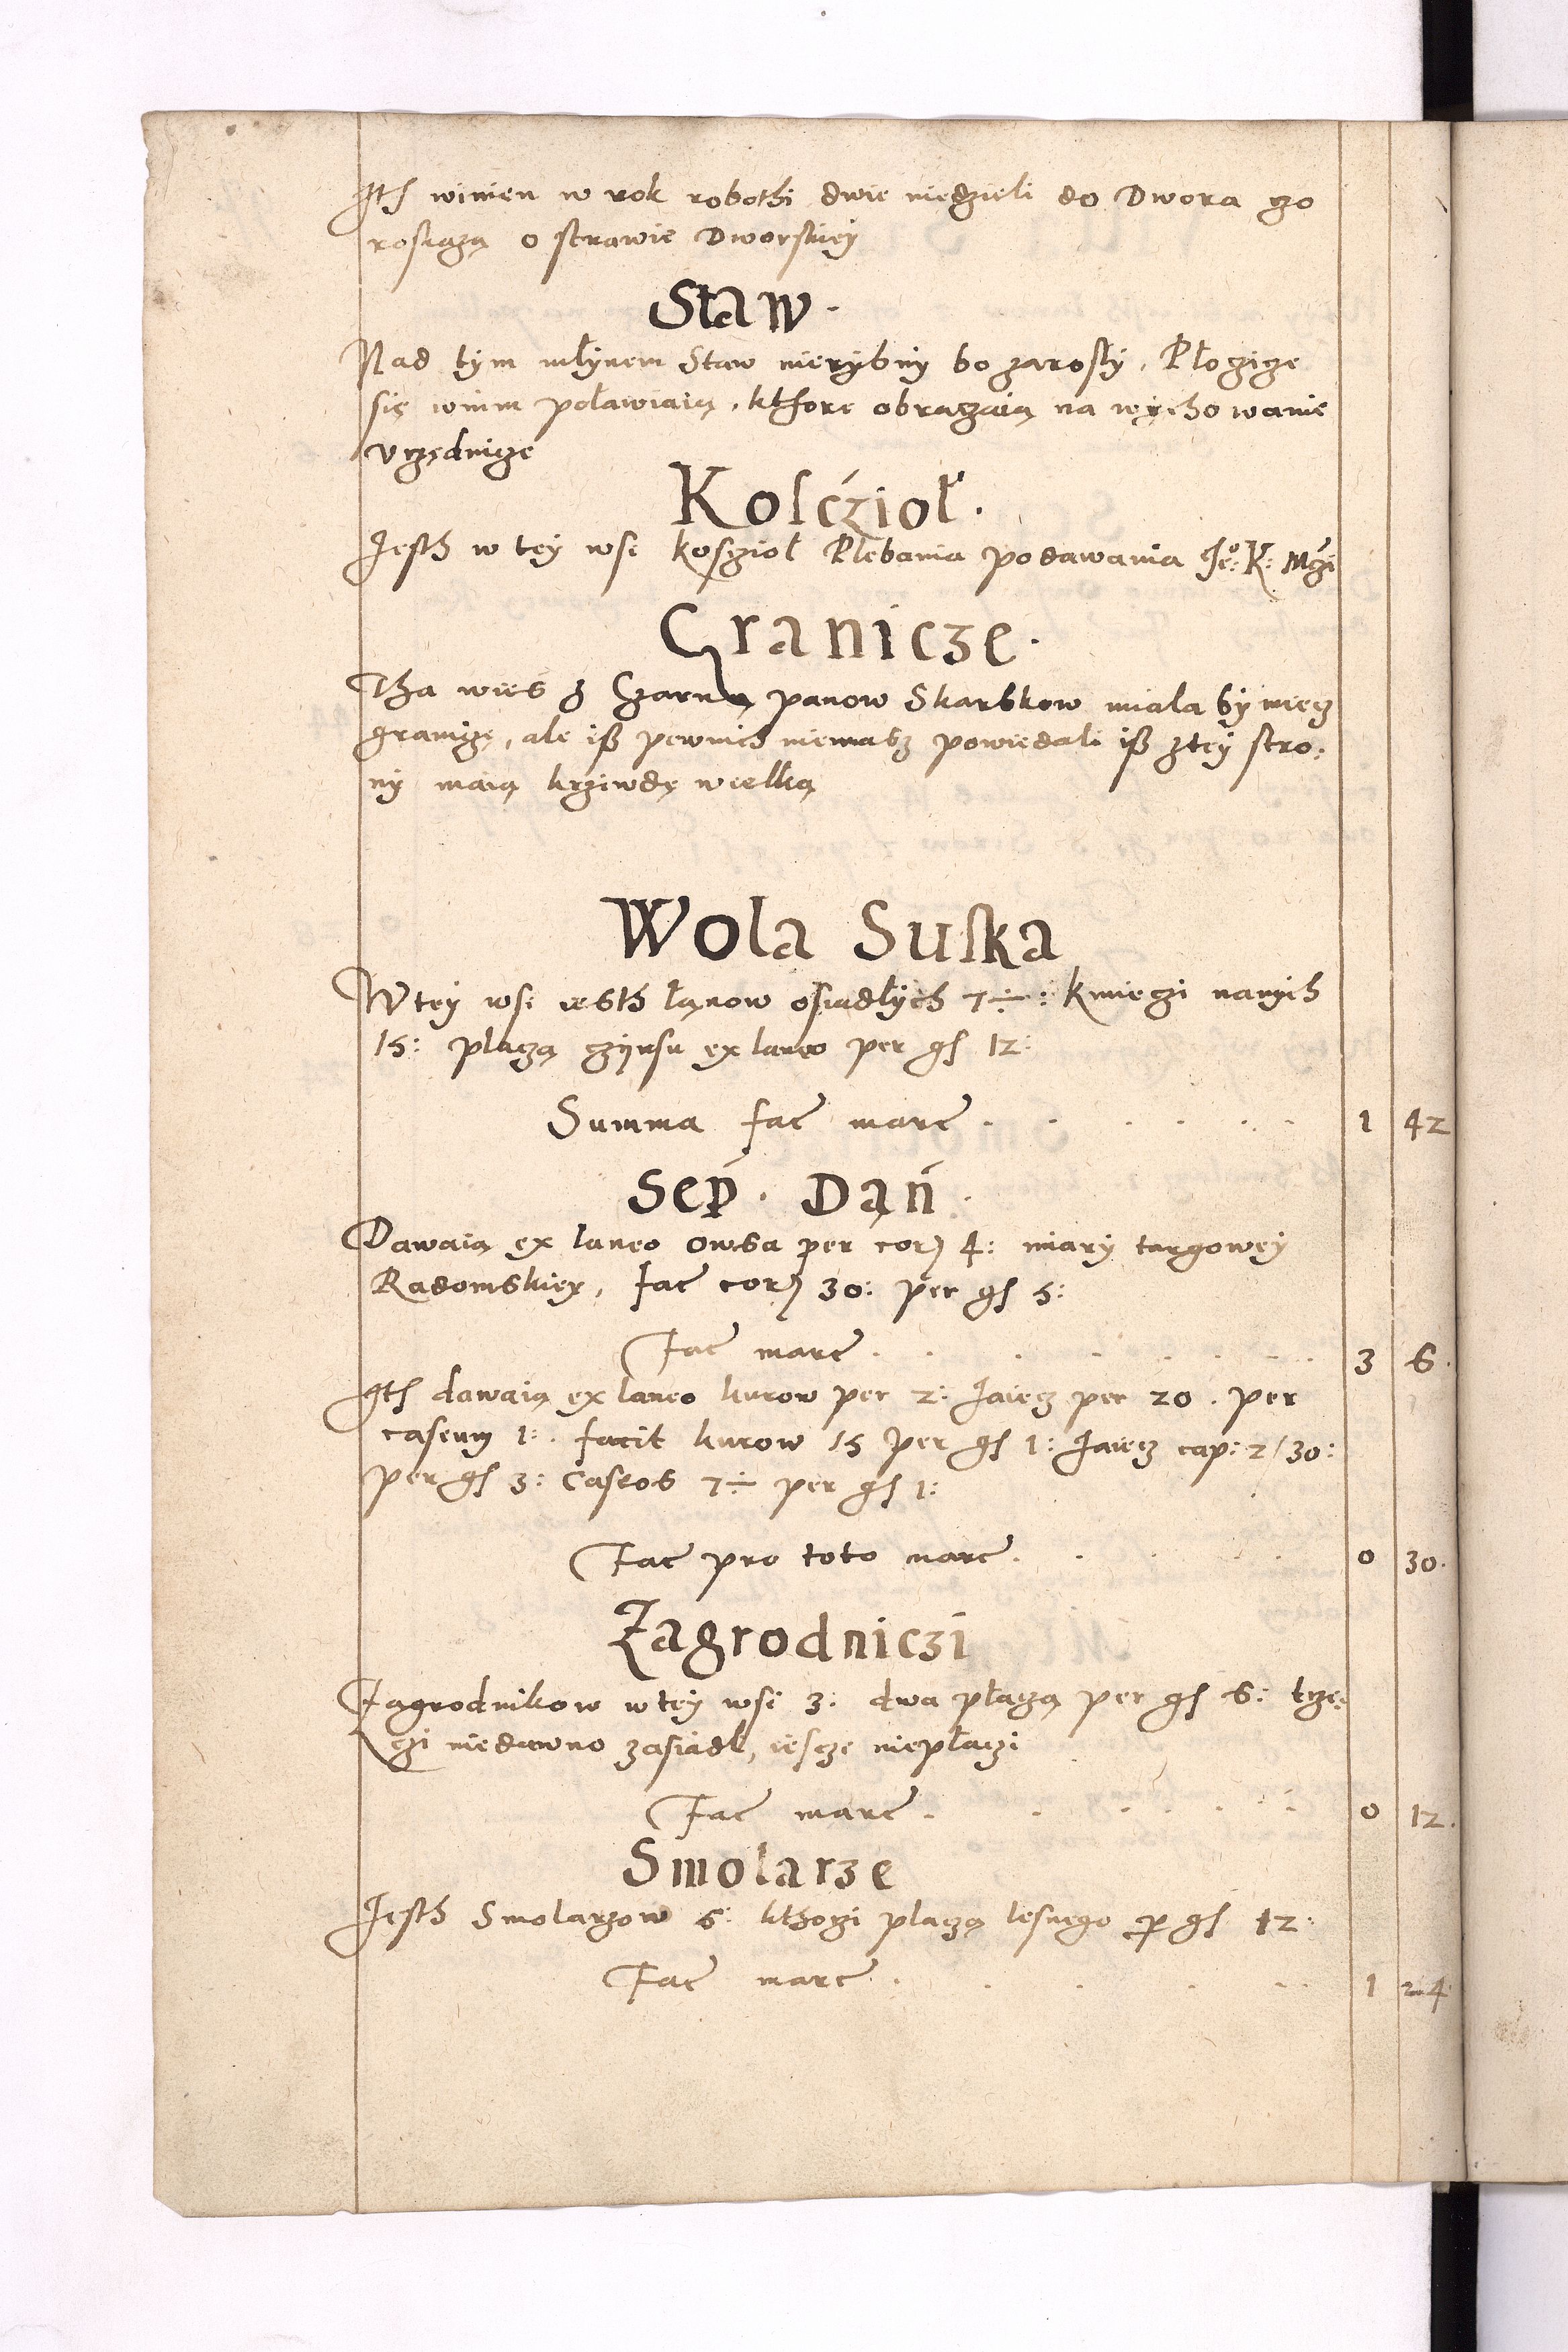 Itħ winien w rok robothi dwie niedzieli do Dwora czo
roskażą o strawie Dworskiey
Staw.
Nad tym młynem Staw nierybny bo zarosły, Płoczicze
się wnim poławiaią, kthore obraczaią na wychowanie
vrzędnicze
Kosćzioł.
Jesth w tey wsi kosczioł Plebania podawania Je°: K: Mczi
Granicze.
Tha wies z Czarną panow Skarbkow miala by miecz
graniczę, ale iß pewnich niemasz powiedali iß ztey stro:
ny maią krziwdę wielką
Wola Suska
W tey wsi iesth łanow osiadłych 7÷: kmieczi nanych
15: płaczą czynsu ex laneo per gſ 12:
Summa fac marc . . . . . . 1 42
Sep. Dań.
Dawaią ex laneo owsa per cor) 4: miary targowey
Radomskiey, fac cor) 30: per gſ 5:
Fac marc . . . . . . . 3 6.
Itħ dawaią ex laneo kurow per 2: Jaiecz per 20. per
caseum 1:. facit kurow 15 per gſ 1: Jaiecz cap: 2/30:
per gſ 3: Caseos 7÷ per gſ 1:
Fac pro toto marc. . . . . 0 30.
Zagrodniczi
Zagrodnikow w tey wsi 3: dwa płaczą per gſ 6: trze
czi niedawno zasiadł, iescze niepłaczi
Fac marc. . . . . . 0 12.
Smolarze
Jesth Smolarzow 6: kthorzi płaczą lesnego p gſ 12:
Fac marc. . . . . . 1 24